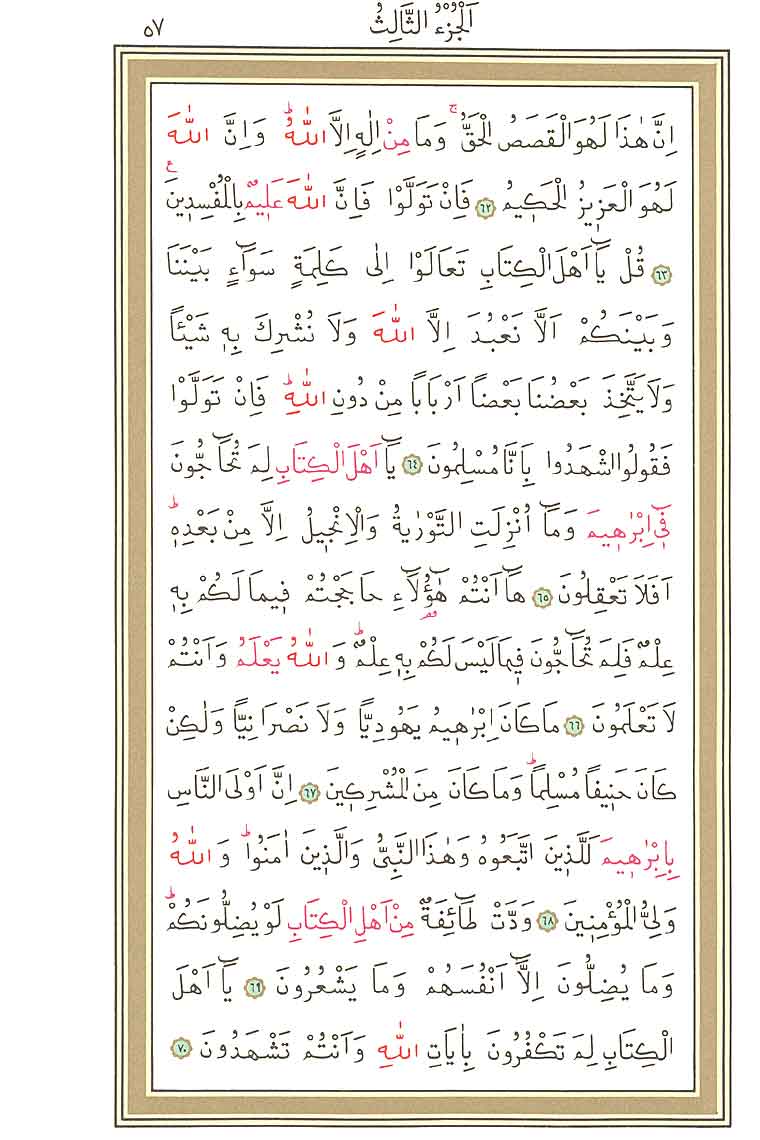 اَلْجُزْءُ الثَّالِثُ
٥٧
اِنَّ هٰذَا لَهُوَ الْقَصَصُ الْحَقُّۚ وَمَا مِنْ اِلٰهٍ اِلَّا اللّٰهُۜ وَاِنَّ اللّٰهَ
لَهُوَ الْعَزٖيزُ الْحَكٖيمُ ٦٢ فَاِنْ تَوَلَّوْا فَاِنَّ اللّٰهَ عَلٖيمٌ بِالْمُفْسِدٖينَࣖ
٦٣ قُلْ يَٓا اَهْلَ الْكِتَابِ تَعَالَوْا اِلٰى كَلِمَةٍ سَوَٓاءٍ بَيْنَنَا
وَبَيْنَكُمْ اَلَّا نَعْبُدَ اِلَّا اللّٰهَ وَلَا نُشْرِكَ بِهٖ شَيْـًٔا
وَلَا يَتَّخِذَ بَعْضُنَا بَعْضًا اَرْبَابًا مِنْ دُونِ اللّٰهِۜ فَاِنْ تَوَلَّوْا
فَقُولُوا اشْهَدُوا بِاَنَّا مُسْلِمُونَ ٦٤ يَٓا اَهْلَ الْكِتَابِ لِمَ تُحَٓاجُّونَ
فٖٓى اِبْرٰهٖيمَ وَمَٓا اُنْزِلَتِ التَّوْرٰيةُ وَالْاِنْجٖيلُ اِلَّا مِنْ بَعْدِهٖۜ
اَفَلَا تَعْقِلُونَ ٦٥ هَٓا اَنْتُمْ هٰٓؤُ۬لَٓاءِ حَاجَجْتُمْ فٖيمَا لَكُمْ بِهٖ
عِلْمٌ فَلِمَ تُحَٓاجُّونَ فٖيمَا لَيْسَ لَكُمْ بِهٖ عِلْمٌۜ وَاللّٰهُ يَعْلَمُ وَاَنْتُمْ
لَا تَعْلَمُونَ ٦٦ مَا كَانَ اِبْرٰهٖيمُ يَهُودِيًّا وَلَا نَصْرَانِيًّا وَلٰكِنْ
كَانَ حَنٖيفًا مُسْلِمًاۜ وَمَا كَانَ مِنَ الْمُشْرِكٖينَ ٦٧ اِنَّ اَوْلَى النَّاسِ
بِاِبْرٰهٖيمَ لَلَّذٖينَ اتَّبَعُوهُ وَهٰذَا النَّبِىُّ وَالَّذٖينَ اٰمَنُواۜ وَاللّٰهُ
وَلِىُّ الْمُؤْمِنٖينَ ٦٨ وَدَّتْ طَٓائِفَةٌ مِنْ اَهْلِ الْكِتَابِ لَوْ يُضِلُّونَكُمْۜ
وَمَا يُضِلُّونَ اِلَّٓا اَنْفُسَهُمْ وَمَا يَشْعُرُونَ ٦٩ يَٓا اَهْلَ
الْكِتَابِ لِمَ تَكْفُرُونَ بِاٰيَاتِ اللّٰهِ وَاَنْتُمْ تَشْهَدُونَ ٧٠